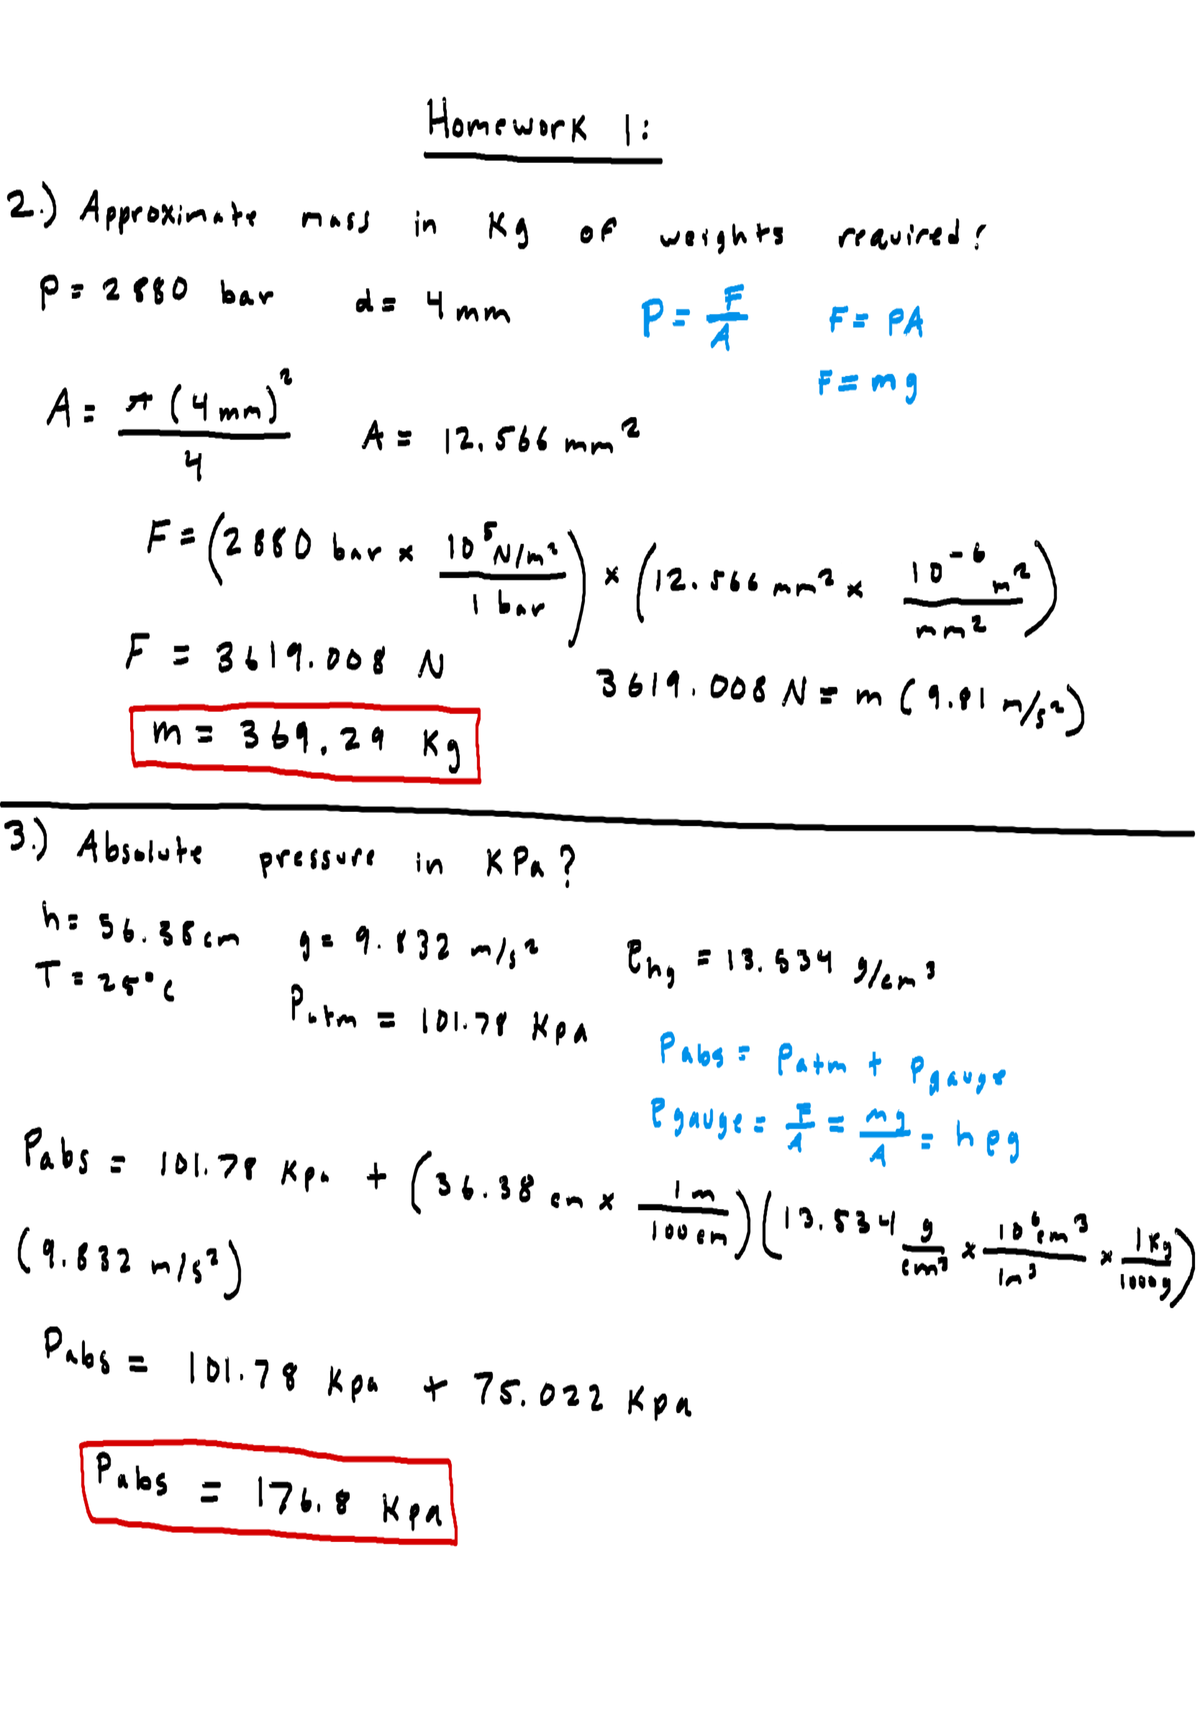 Homework 1:
2.) Approximate mass in Kg of weights required?
P = 2880 bar d = 4 mm P = F/A F = PA
F = mg
A = π(4 mm)²/4 A = 12.566 mm²
F = (2880 bar × 10⁵ N/m²/1 bar) × (12.566 mm² × 10⁻⁶ m²/mm²)
F = 3619.008 N 3619.008 N = m (9.81 m/s²)
m = 369.29 Kg
3.) Absolute pressure in KPa?
h = 56.38 cm g = 9.832 m/s² ρhg = 13.534 g/cm³
T = 25°C Patm = 101.78 KPa
Pabs = Patm + Pgauge
Pgauge = F/A = mg/A = hρg
Pabs = 101.78 KPa + (56.38 cm × 1 m/100 cm)(13.534 g/cm³ × 10⁶ cm³/1m³ × 1Kg/1000g)
(9.832 m/s²)
Pabs = 101.78 KPa + 75.022 KPa
Pabs = 176.8 KPa